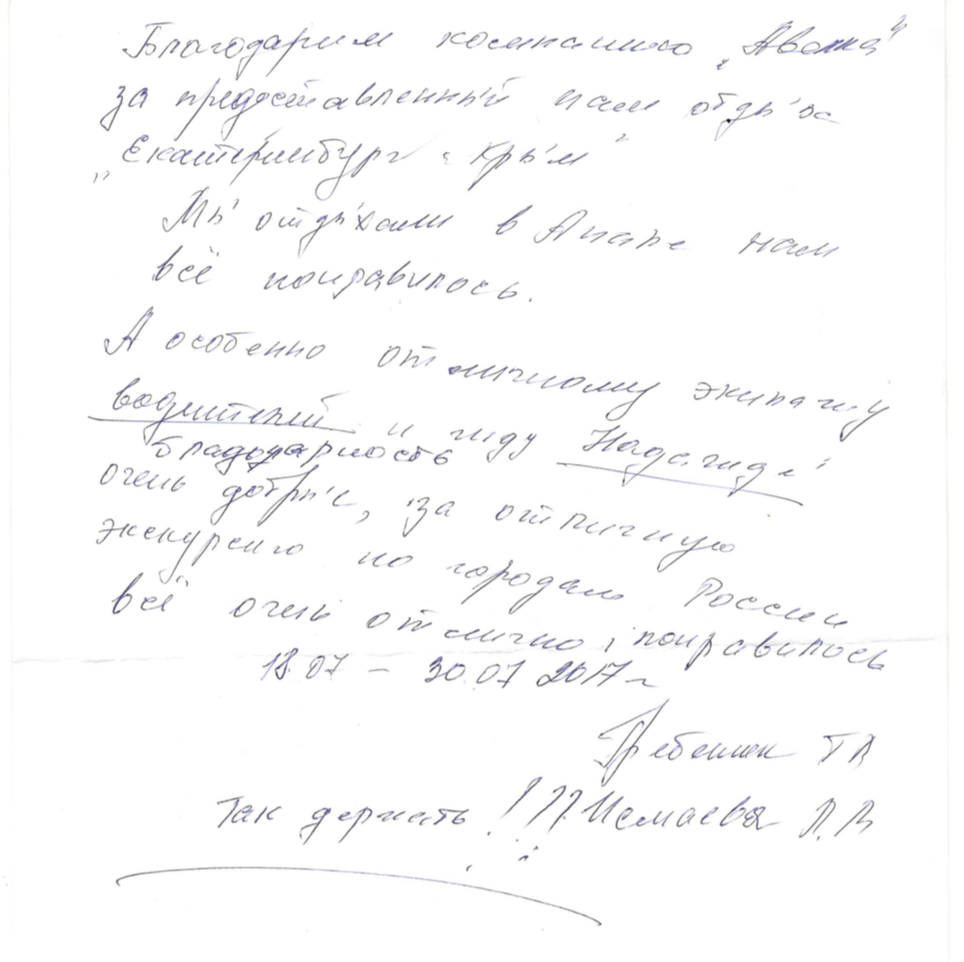 Благодарим компанию „Авока"
за предоставленный нам отдых
„Екатеринбург - Крым"
Мы отдыхали в Анапе нам
всё понравилось.
А особенно отличному экипажу
водителей и гиду Надежде
благодарность
очень добрые, за отличную
экскурсию по городам России
всё очень отлично, понравилось
18.07 – 30.07 2017 г
Гребенюк ТВ
Так держать!!! Исмаева Л.В